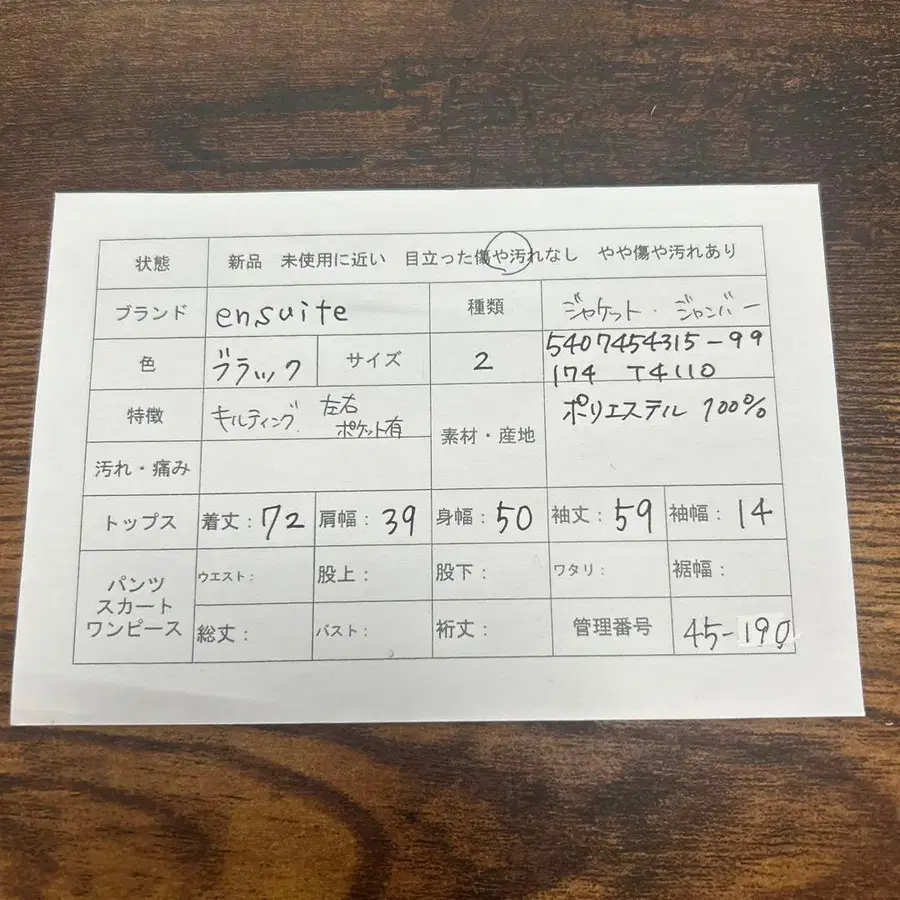 状態 新品 未使用に近い 目立った傷や汚れなし やや傷や汚れあり
ブランド ensuite 種類 ジャケット・ジャンバー
色 ブラック サイズ 2 5407454315-99
174 T4110
特徴 キルティング. 左右
ポケット有
素材・産地 ポリエステル 100%
汚れ・痛み
トップス 着丈:72 肩幅:39 身幅:50 袖丈:59 袖幅:14
パンツ
スカート
ワンピース
ウエスト: 股上: 股下: ワタリ: 裾幅:
総丈: バスト: 裄丈: 管理番号 45-190